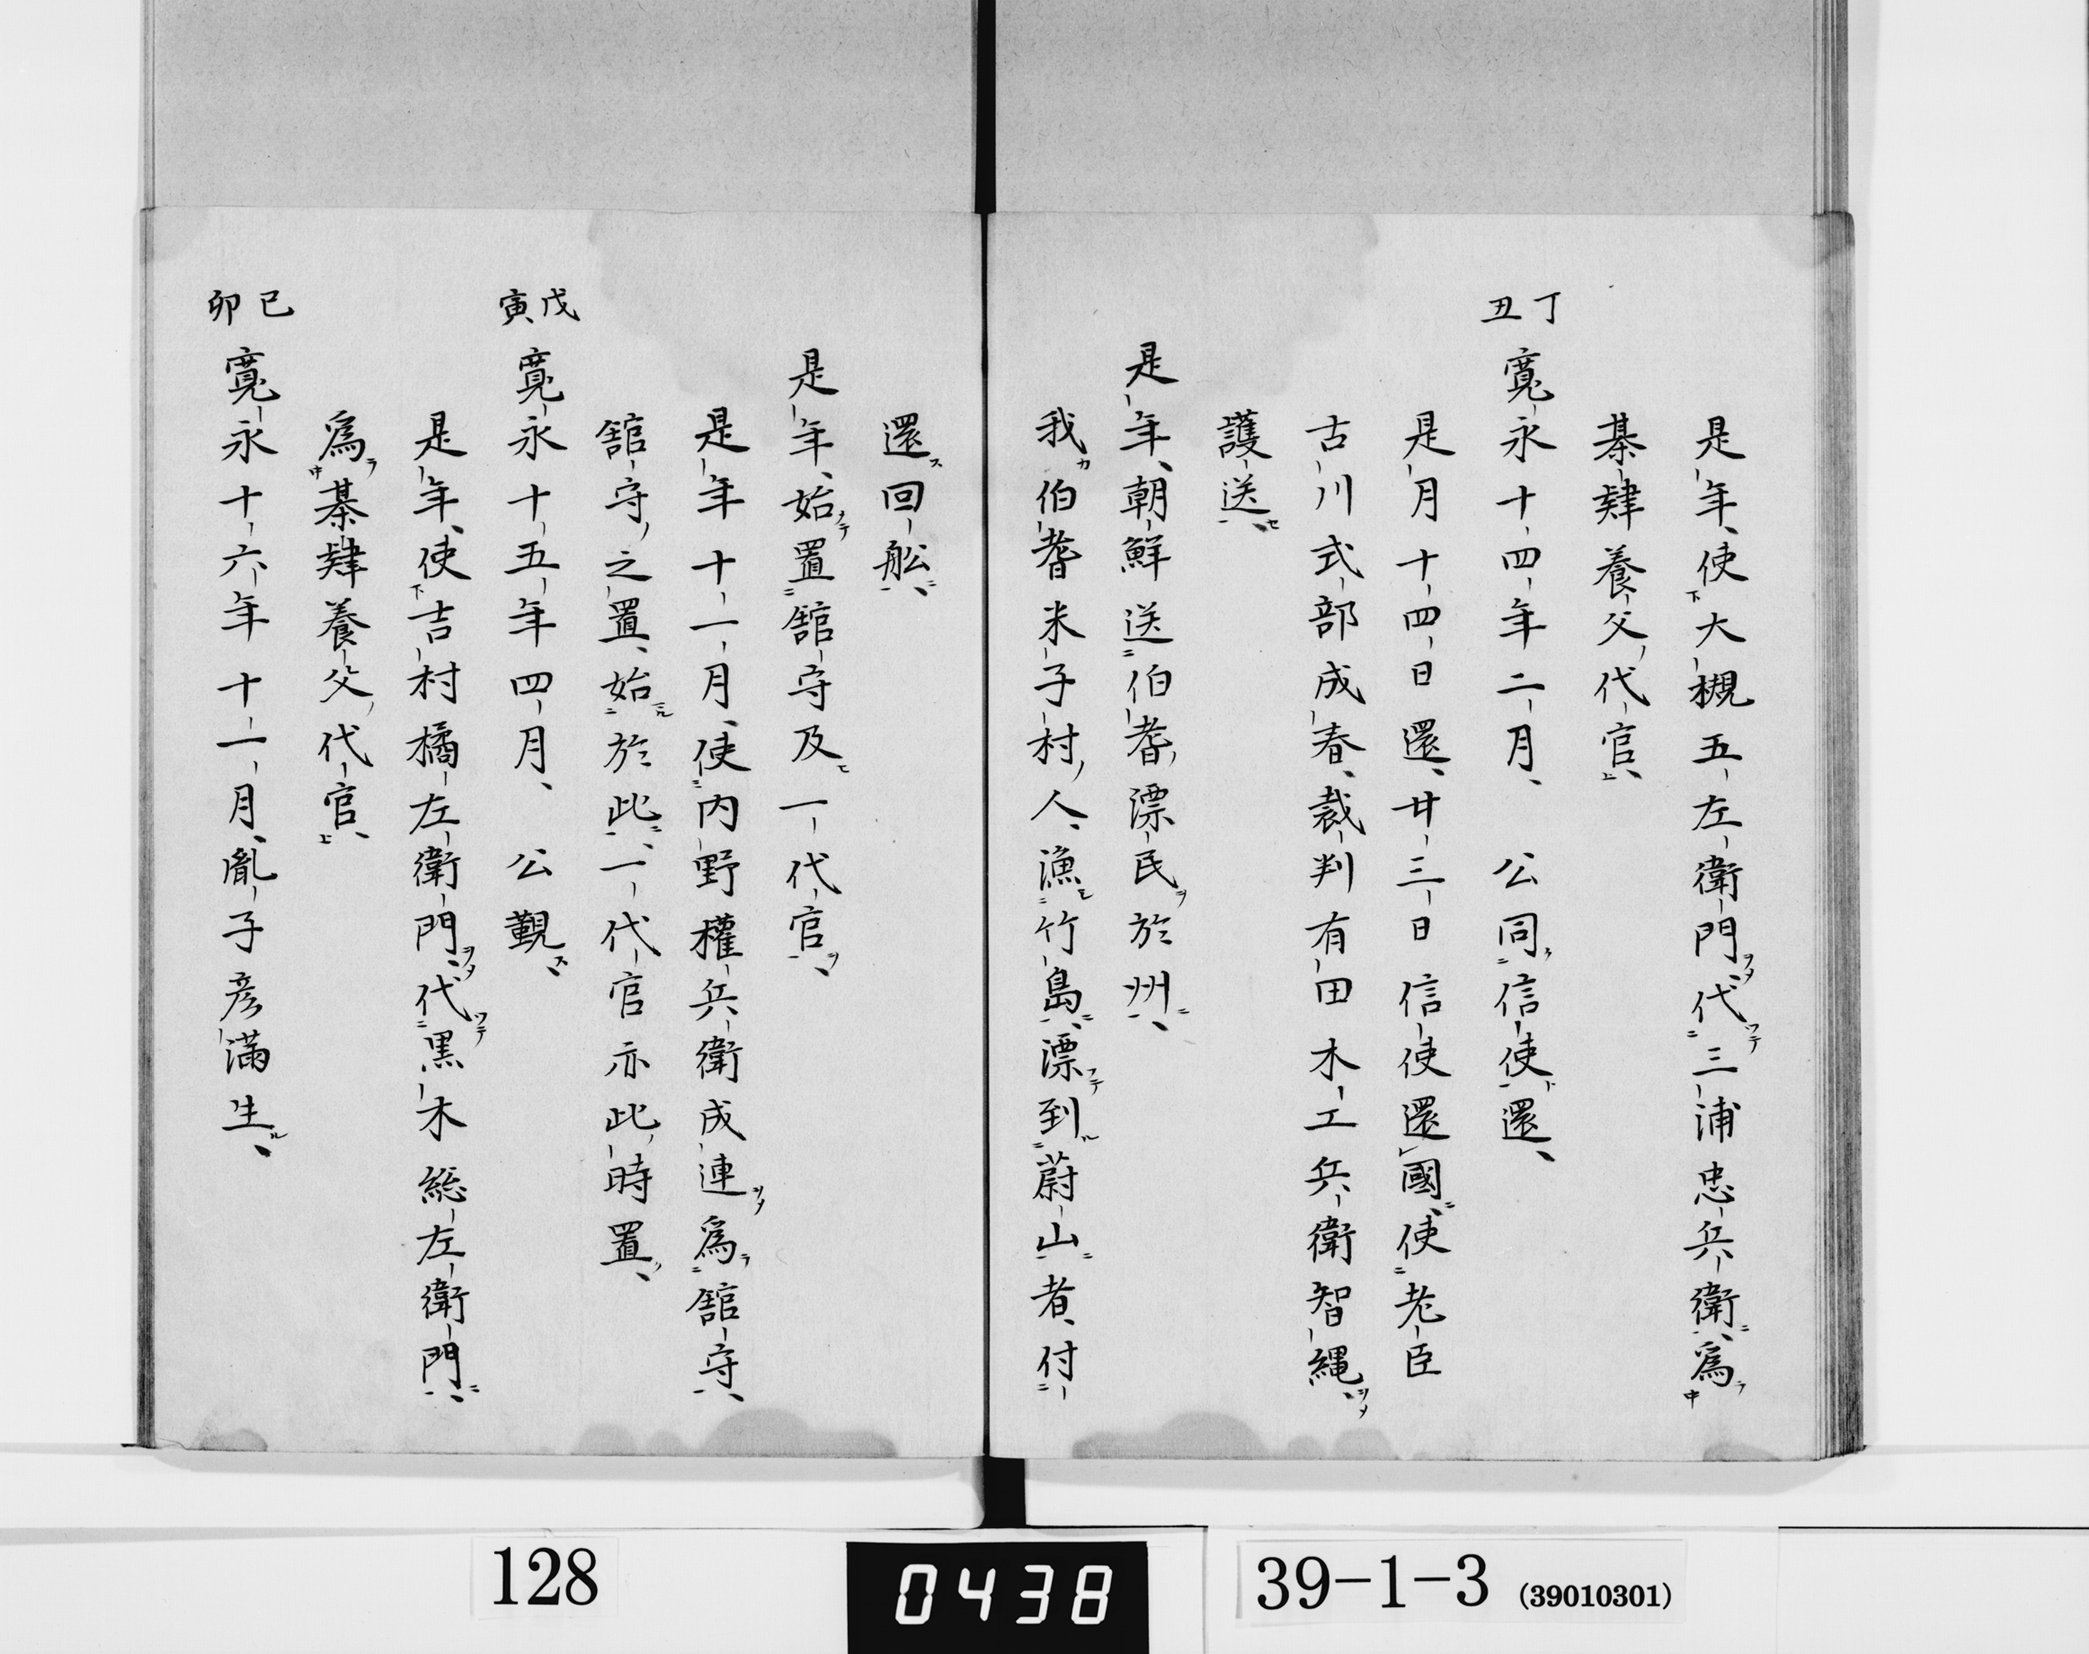 是年、使大槻五左衛門代三浦忠兵衛、為
基肄養父代官、
丁丑
寛永十四年二月、公同信使還、
是月十四日還、廿三日信使還國、使老臣
古川式部成春、裁判有田木工兵衛智縄
護送、
是年、朝鮮送伯耆漂民於州、
我伯耆米子村人、漁竹島、漂到蔚山者、付
還回舩、
是年、始置舘守及一代官、
是年十一月、使内野權兵衛成連為舘守、
舘守之置、始於此、一代官亦此時置、
戊寅
寛永十五年四月、公覲、
是年、使吉村橘左衛門、代黒木総左衛門、
為基肄養父代官、
己卯
寛永十六年十一月、胤子彦満生、
128
0438
39-1-3 (39010301)